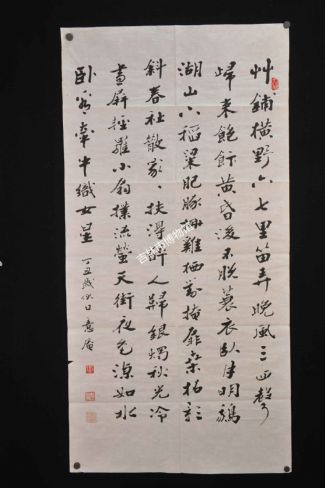 艸鋪横野六七里笛弄晚風三四聲
歸來飽飯黄昏後不脱蓑衣卧月明鵝
湖山下稻粱肥豚栅雞栖對掩扉桑柘影
斜春社散家々扶得醉人歸銀燭秋光冷
畫屏輕羅小扇撲流螢天街夜色涼如水
卧看牽牛織女星
丁丑歲秋日意庵
吉林市博物馆